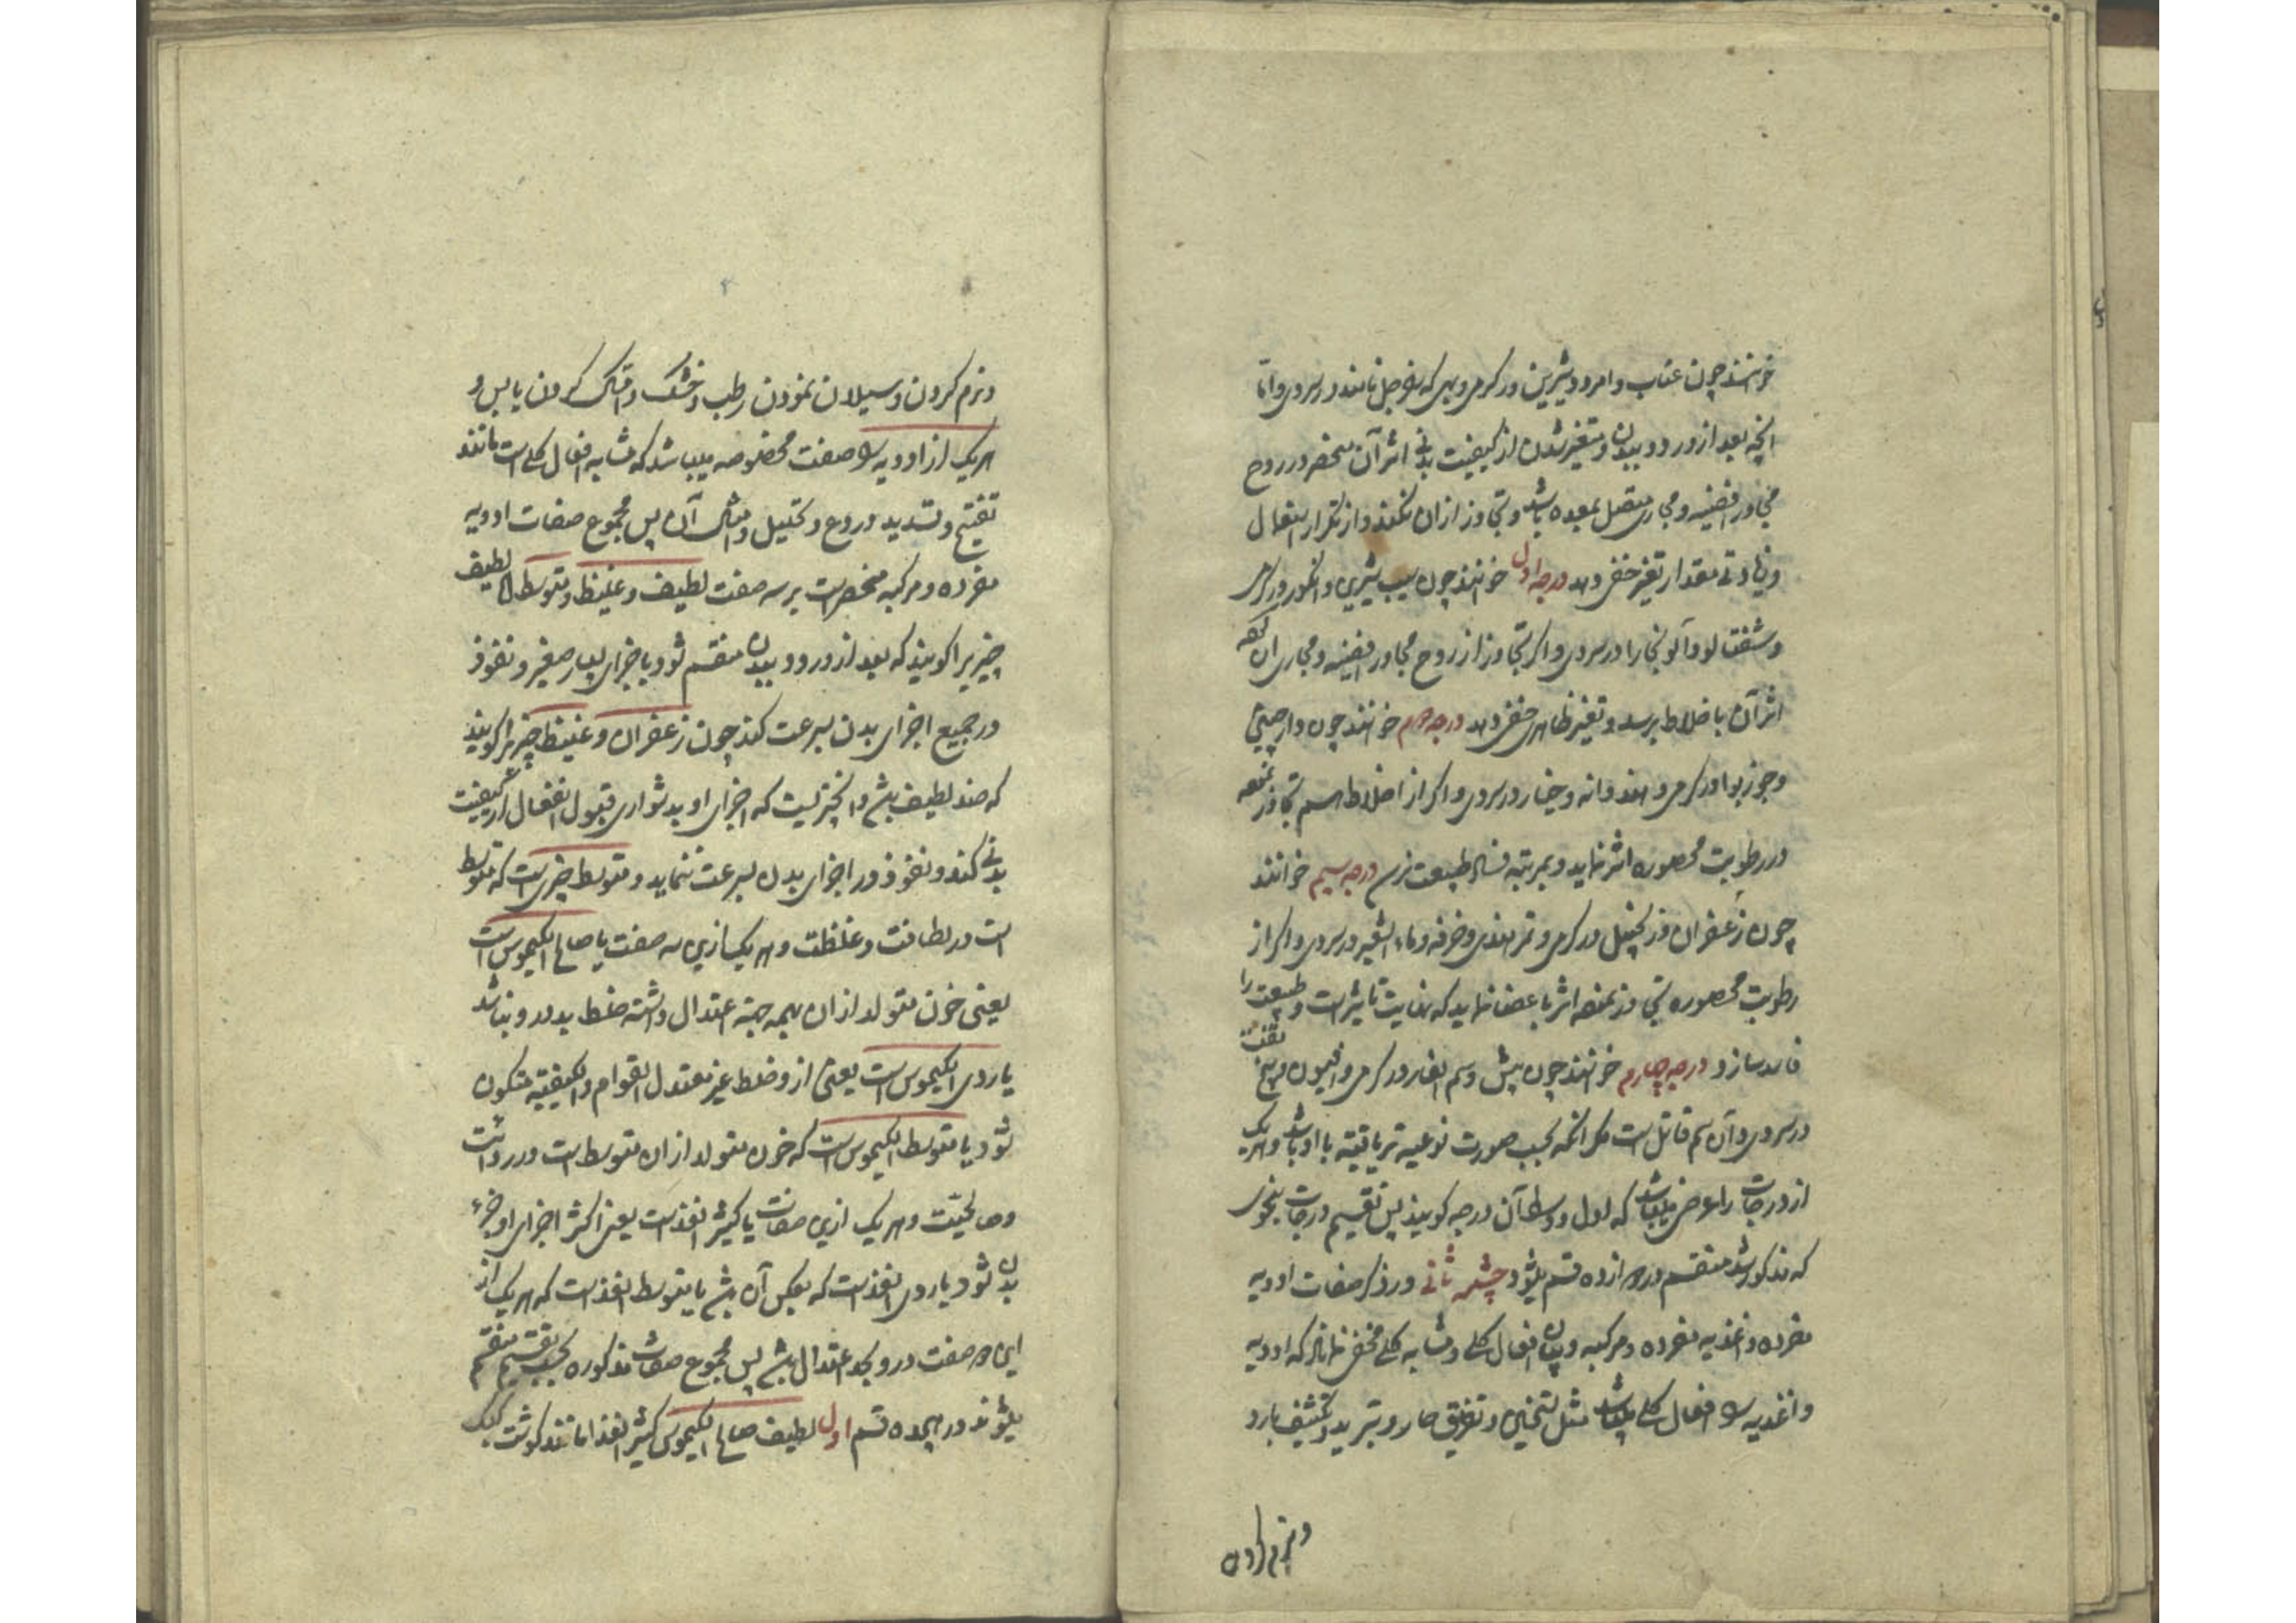 خوانند چون عناب و امرود شیرین در کرمی و بهی که بوجل نامند در سردی و اما
آنچه بعد از ورود ببدن و متغیر شدن از کیفیت بدنی اثر آن منحصر در روح
مجاور افضیه و مجاری متصل بمعده باشد و تجاوز ازان نکند و از تکرار استعمال
و زیادتی مقدار تغیر خفی دهد درجه اول خوانند چون سیب شیرین و انکور در کرمی
و شفتالو و آلو بخارا در سردی و اکر تجاوز از روح مجاور افضیه و مجاری آن نموده
اثر آن باخلاط برسد و تغیر ظاهری خفی دهد درجه دوم خوانند چون دارچینی
و جوزبوا در کرمی و هندوانه و خیار در سردی و اکر از اخلاط هم تجاوز نموده
در رطوبت محصوره اثر نماید و بمرتبه فساد طبیعت نرسد درجه سیم خوانند
چون زعفران و زنجبیل در کرمی و تمر هندی و خرفه و ماء الشعیر در سردی و اکر از
رطوبت محصوره تجاوز نموده اثر باعضا نماید که نهایت تاثیر است و طبیعت را
فاسد سازد درجه چهارم خوانند چون بیش و سم الفار در کرمی و افیون و یخ
در سردی و آن سم قاتل است مکر آنکه بحسب صورت نوعیه تریاقیه با او باشد و هریک
از درجات را عرض میباشد که اول و وسط آن درجه کویند پس تقسیم درجات بنحوی
که مذکور شد منقسم دوازده قسم میشود چشمه ثانی در ذکر صفات ادویه
مفرده و اغذیه مفرده و مرکبه و بیان افعال کلی و مشابه کلی مخفی نماند که ادویه
و اغذیه را افعال کلی میباشد مثل تسخین و تفریق حار و تبرید و تکثیف بارد
و نرم کردن
و نرم کردن و سیلان نمودن رطب و خشک و امساک کردن یابس و
هریک از ادویه را صفت مخصوصه میباشد که مشابه افعال کلی است مانند
تفتیح و تسدید و ردع و تحلیل و امثال آن پس مجموع صفات ادویه
مفرده و مرکبه منحصر است بر سه صفت لطیف و غلیظ و متوسط اما لطیف
چیزیرا کویند که بعد از ورود ببدن منقسم شود باجزای بسیار صغیر و نفوذ
در جمیع اجزای بدن بسرعت کند چون زعفران و غلیظ چیزیرا کویند
که ضد لطیف باشد و آنچیزیست که اجزای او بدشواری قبول انفعال از کیفیت
بدنی کند و نفوذ در اجزای بدن بسرعت ننماید و متوسط چیزیست که متوسط
است در لطافت و غلظت و هریک ازین سه صفت یا صالح الکیموس است
یعنی خون متولد ازان بهمه جهته اعتدال داشته خلط بد درو نباشد
یا ردی الکیموس است یعنی ازو خلط غیر معتدل القوام و الکیفیة متکون
شود یا متوسط الکیموس است که خون متولد ازان متوسط است در رداءت
و صالحیت و هریک ازین صفات یا کثیر الغذاست یعنی اکثر اجزای او جزء
بدن شود یا ردی الغذاست که بعکس آن باشد یا متوسط الغذاست که هریک از
این دو صفت درو بحد اعتدال باشد پس مجموع صفات مذکوره بحسب تقسیم منقسم
میشوند در هیجده قسم اول لطیف صالح الکیموس کثیر الغذا مانند کوشت کبک